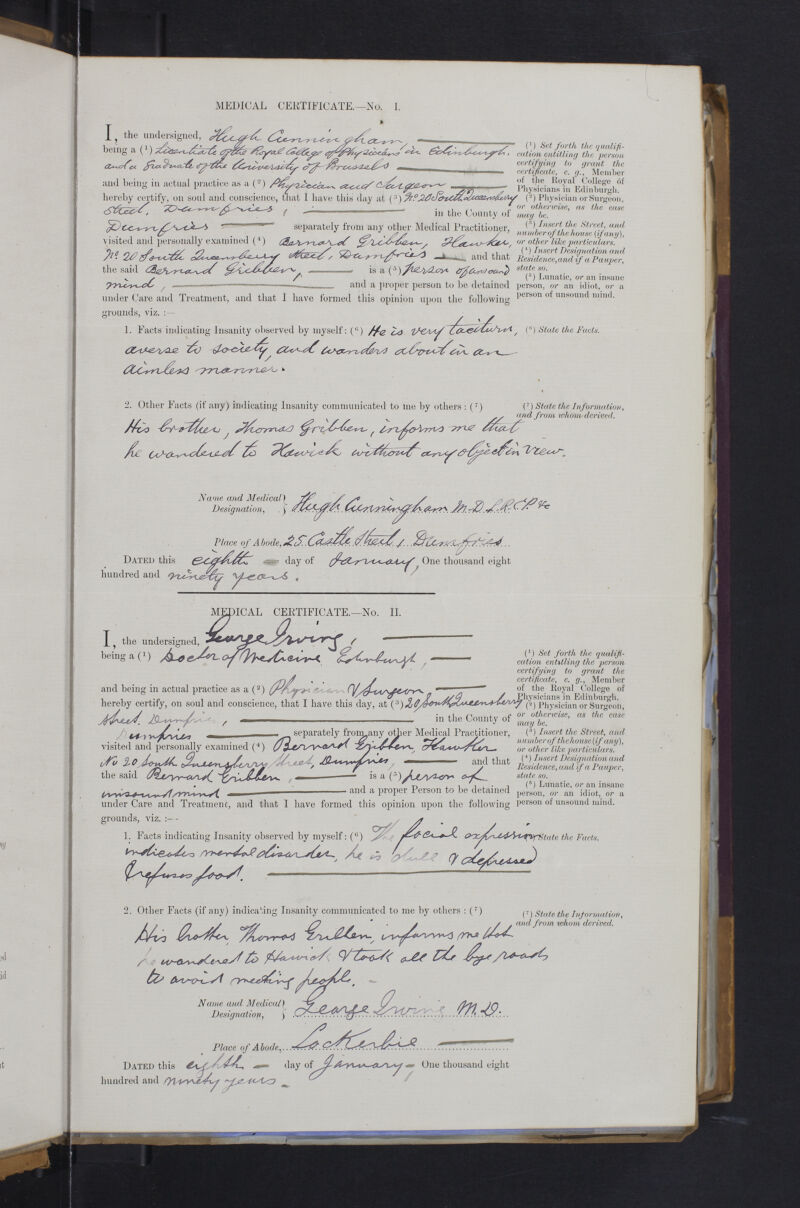 MEDICAL CERTIFICATE.—No. I.
I, the undersigned, Hugh Cunningham,
being a (¹) Licentiate of the Royal College of Physicians in Edinburgh.
and a Graduate of the University of Brussels
and being in actual practice as a (²) Physician and Surgeon
hereby certify, on soul and conscience, that I have this day at (³) No 20 South Queensberry
Street, Dumfries, in the County of
Dumfries separately from any other Medical Practitioner,
visited and personally examined (⁴) Bernard Gribben, Hawker,
No 20 South Queensberry Street, Dumfries and that
the said Bernard Gribben, is a (⁵) person of unsound
mind, and a proper person to be detained
under Care and Treatment, and that I have formed this opinion upon the following
grounds, viz. :—
(¹) Set forth the qualifi-
cation entitling the person
certifying to grant the
certificate, e. g., Member
of the Royal College of
Physicians in Edinburgh.
(²) Physician or Surgeon,
or otherwise, as the case
may be.
(³) Insert the Street, and
number of the house (if any),
or other like particulars.
(⁴) Insert Designation and
Residence, and if a Pauper,
state so.
(⁵) Lunatic, or an insane
person, or an idiot, or a
person of unsound mind.
1. Facts indicating Insanity observed by myself: (⁶) He is very taciturn,
averse to society, and wanders about in an
aimless manner.
(⁶) State the Facts.
2. Other Facts (if any) indicating Insanity communicated to me by others : (⁷)
(⁷) State the Information,
and from whom derived.
His brother, Thomas Gribben, informs me that
he wandered to Hawick without any object in view.
Name and Medical
Designation, Hugh Cunningham M.D. L.R.C.P. &c
Place of Abode, 25 Castle Street, Dumfries
DATED this eighth day of January, One thousand eight
hundred and ninety years.
MEDICAL CERTIFICATE.—No. II.
I, the undersigned, George Irving,
being a (¹) Doctor of Medicine Edinburgh,
and being in actual practice as a (²) Physician & Surgeon
hereby certify, on soul and conscience, that I have this day, at (³) 20 South Queensberry
Street, Dumfries, in the County of
Dumfries separately from any other Medical Practitioner,
visited and personally examined (⁴) Bernard Gribben, Hawker
No 20 South Queensberry Street, Dumfries, and that
the said Bernard Gribben, is a (⁵) person of
unsound mind and a proper Person to be detained
under Care and Treatment, and that I have formed this opinion upon the following
grounds, viz. :--
(¹) Set forth the qualifi-
cation entitling the person
certifying to grant the
certificate, e. g., Member
of the Royal College of
Physicians in Edinburgh.
(²) Physician or Surgeon,
or otherwise, as the case
may be.
(³) Insert the Street, and
number of the house (if any),
or other like particulars.
(⁴) Insert Designation and
Residence, and if a Pauper,
state so.
(⁵) Lunatic, or an insane
person, or an idiot, or a
person of unsound mind.
1. Facts indicating Insanity observed by myself: (⁶) The facial expression
indicates mental disorder, he is dull & depressed
& refuses food.
State the Facts.
2. Other Facts (if any) indicating Insanity communicated to me by others : (⁷)
(⁷) State the Information,
and from whom derived.
His brother, Thomas Gribben, informs me that
he wandered to Hawick & took all the bye roads
to avoid meeting people.
Name and Medical
Designation, George Irving M.D.
Place of Abode, Lockerbie
DATED this eighth day of January, One thousand eight
hundred and ninety years